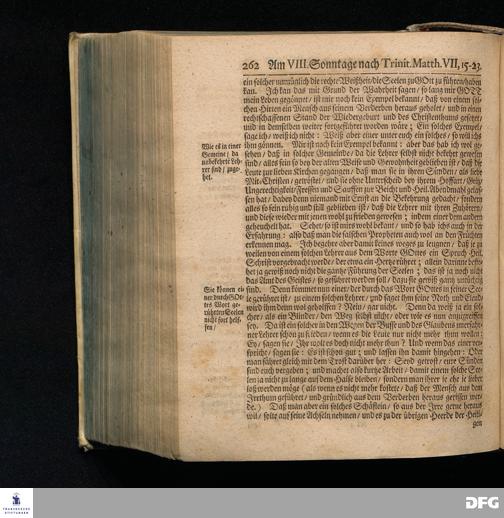 262 Am VIII. Sonntage nach Trinit. Matth. VII, 15-23.
ein solcher vermäynlich die rechte Weißheit/die Seelen zu GOtt zu führen/haben
kan. Ich kan das mit Grund der Wahrheit sagen/ so lang mir GOTT
mein Leben gegönnet/ ist mir noch kein Exempel bekannt/ daß von einem sol-
chen Hirten ein Mensch aus seinem Verderben heraus geholet/ und in einen
rechtschaffenen Stand der Wiedergeburt und des Christenthums gesetzet/
und in demselben weiter fortgeführet worden wäre; Ein solches Exempel/
sage ich/ weiß ich nicht: Weiß aber einer unter euch ein solches/ so will ichs
ihm gönnen. Mir ist noch kein Exempel bekannt: aber das hab ich wol ge-
sehen/ daß in solcher Gemeinde/ da die Lehrer selbst nicht bekehrt gewesen
sind/ alles fein so bey der alten Weise und Gewohnheit geblieben ist/ daß die
Leute zur lieben Kirchen gegangen/ daß man sie in ihren Sünden/ als liebe
Mit-Christen/ getröstet/ und sie ohne Unterscheid bey ihrem Hoffart/ Geitz/
Ungerechtigkeit/ Fressen und Sauffen zur Beicht und Heil. Abendmahl gelas-
sen hat/ dabey denn niemand mit Ernst an die Bekehrung gedacht/ sondern
alles so fein ruhig und still geblieben ist/ daß die Lehrer mit ihren Zuhörern/
und diese wieder mit jenen wohl zu frieden gewesen; indem einer dem andern
geheuchelt hat. Sehet/ so ist mirs wohl bekant/ und so hab ichs auch in der
Erfahrung: also daß man die falschen Propheten auch wol an den Früchten
erkennen mag. Ich begehre aber damit keines weges zu leugnen/ daß je zu
weilen von einem solchen Lehrer aus dem Worte GOttes ein Spruch Heil.
Schrifft vorgebracht werde/ der etwa ein Hertze rühret; allein darinne beste-
het ja gewiß noch nicht die gantze Führung der Seelen; das ist ja noch nicht
das Amt des Geistes/ so geführet werden soll/ dazu sie gewiß gantz untüchtig
sind. Denn kömmet nun einer/ der durch das Wort GOttes in seiner See-
le gerühret ist/ zu einem solchen Lehrer/ und saget ihm seine Noth und Elend/
wird ihm denn wol geholffen? Nein/ gar nicht. Denn da weiß ja ein sol-
cher/ als ein Blinder/ den Weg selbst nicht/ oder wie es nun anzugreiffen
sey. Da ist ein solcher in den Wegen der Busse und des Glaubens unerfahr-
ner Lehrer schon zu frieden/ wenn es die Leute nur nicht mehr thun wollen:
Ey/ sagen sie/ Ihr wollt es doch nicht mehr thun? Und wenn das einer ver-
spricht/ sagen sie: Es ist schon gut; und lassen ihn damit hingehen: Oder
man führet gleich mit dem Trost darüber her: Seyd getrost/ eure Sünden
sind euch vergeben; und machet also kurtze Arbeit/ damit einem solche See-
len ja nicht zu lange auf dem Halse bleiben/ sondern man ihrer je ehe je lieber
loß werden möge (als wenn es nicht mehr kostete/ daß der Mensch aus dem
Irrthum geführet/ und gründlich aus dem Verderben heraus gerissen wer-
de.) Daß man aber ein solches Schäflein/ so aus der Irre gerne heraus
wil/ solte auf seine Achseln nehmen/ und es zu der übrigen Heerde der Heili-
gen
Wie es in einer
Gemeine/ da
unbekehrte Leh-
rer sind/ zuge-
het.
Sie können ei-
nen durch GOt-
tes Wort ge-
rührten Seelen
nicht fort helf-
fen/
FRANCKESCHE
STIFTUNGEN
DFG